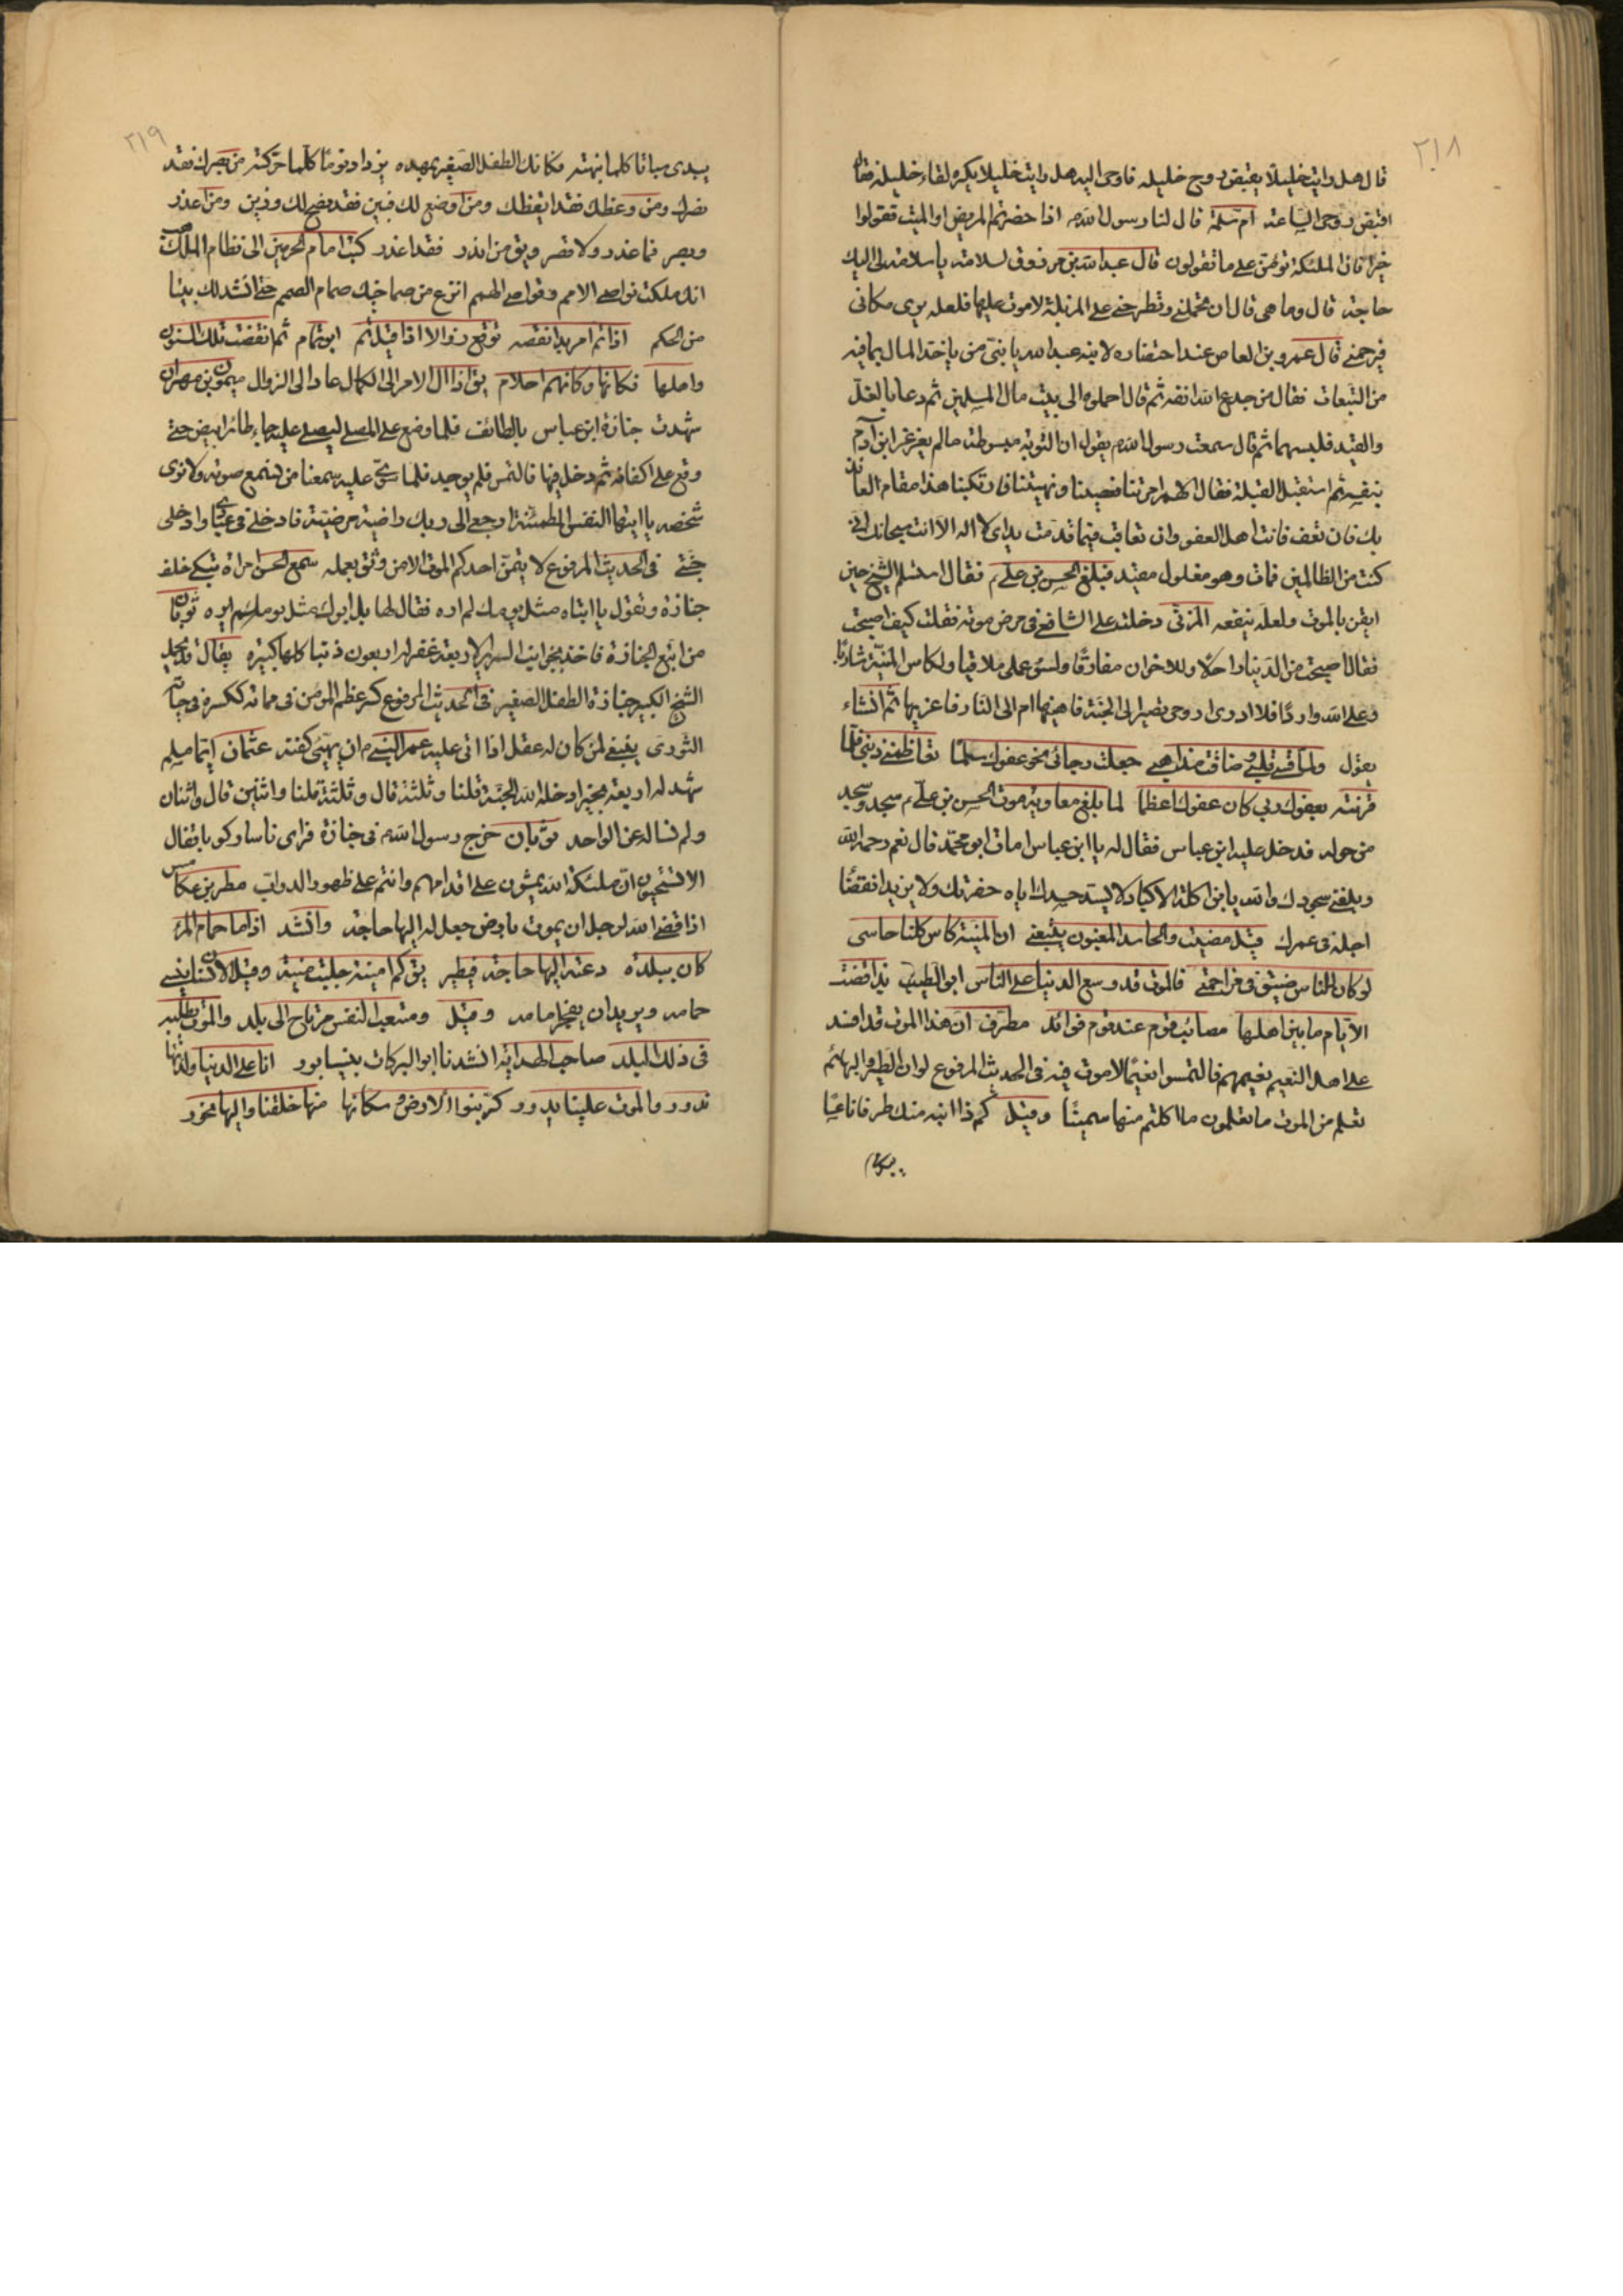 ٢١٨
قال هل رايت خليلا يقبض روح خليله فاوحى اليه هل رايت خليلا يكره لقاء خليله فقال
اقبض روحى الساعة ام سلمة قال لنا رسول الله م اذا حضرتم المريض او الميت فقولوا
خيرا فان الملئكة تؤمن على ما تقولون قال عبد الله بن مرزوق لسلامة يا سلامة لى اليك
حاجة قال وما هى قال ان تحملنى وتطرحنى على المزبلة لاموت عليها فلعله يرى مكانى
فيرحمنى قال عمرو بن العاص عند احتضاره لابنه عبد الله يا بنى من ياخذ المال بما فيه
من التبعات فقال من جدع الله انفه ثم قال احملوه الى بيت مال المسلمين ثم دعا بالغل
والقيد فلبسهما ثم قال سمعت رسول الله م يقول ان التوبة مبسوطة ما لم يغرغر ابن آدم
بنفسه ثم استقبل القبلة فقال اللهم امرتنا فعصينا ونهيتنا فارتكبنا هذا مقام العائذ
بك فان تعف فانت اهل العفو وان تعاقب فبما قدمت يداى لا اله الا انت سبحانك انى
كنت من الظالمين فمات وهو مغلول مقيد فبلغ الحسن بن على م فقال استسلم الشيخ حين
ايقن بالموت ولعله ينفعه المزنى دخلت على الشافعى فى مرض موته فقلت كيف اصبحت
فقال اصبحت من الدنيا راحلا وللاخوان مفارقا ولسوء عملى ملاقيا ولكاس المنية شاربا
وعلى الله واردا فلا ادرى اروحى تصير الى الجنة فاهنيها ام الى النار فاعزيها ثم انشاء
يقول ولما قسى قلبى وضاقت مذاهبى جعلت رجائى نحو عفوك سلما تعاظمنى ذنبى فلما
قرنته بعفوك ربى كان عفوك اعظما لما بلغ معاوية موت الحسن بن على م سجد وسجد
من حوله فدخل عليه ابن عباس فقال له يا ابن عباس امات ابو محمد قال نعم رحمه الله
وبلغنى سجودك والله يا ابن اكلة الاكباد لا يسد جسدك اياه حفرتك ولا يزيد انقضاء
اجله فى عمرك قيل مضيت والحاسد المغبون يتبعنى ان المنية كاس كلنا حاسى
لو كان للناس ضيق فى مزاحمتى فالموت قد وسع الدنيا على الناس ابو الطيب بذا قضت
الايام ما بين اهلها مصائب قوم عند قوم فوائد مطرف ان هذا الموت قد افسد
على اهل النعيم نعيمهم فالتمسوا نعيما لا موت فيه فى الحديث المرفوع لو ان الطير والبهائم
تعلم من الموت ما تعلمون ما اكلتم منها سمينا وقيل كم ذا انبه منك طرفا ناعسا
٢١٩
يبدى سباتا كلما نبهته فكانك الطفل الصغير بمهده يزداد نوما كلما حركته من بصرك فقد
نصرك ومن وعظك فقد ايقظك ومن اوضح لك فبين فقد نصح لك وزين ومن اعذر
وبصر فما غدر ولا قصر ويق من انذر فقد اعذر كتب امام الحرمين الى نظام الملك
انك ملكت نواصى الامم وقواصى الهمم انزع من صماخيك صمام الصمم حتى انشد لك بيتا
من الحكم اذا تم امر بدا نقصه توقع زوالا اذا قيل تم ابو تمام ثم انقضت تلك السنون
واهلها فكانها وكانهم احلام يق اذا آل الامر الى الكمال عاد الى الزوال ميمون بن مهران
شهدت جنازة ابن عباس بالطائف فلما وضع على المصلى ليصلى عليه جاء طائر ابيض حتى
وقع على اكفانه ثم دخل فيها فالتمس فلم يوجد فلما سوى عليه سمعنا من نسمع صوته ولا نرى
شخصه يا ايتها النفس المطمئنة ارجعى الى ربك راضية مرضية فادخلى فى عبادى وادخلى
جنتى فى الحديث المرفوع لا يتمن احدكم الموت الا من وثق بعمله سمع الحسن امراة تبكى خلف
جنازة وتقول يا ابتاه مثل يومك لم اره فقال لها بل ابوك مثل يومه لم يره ثوبان
من اتبع الجنازة فاخذ بجوانب السرير الاربعة غفر له اربعون ذنبا كلها كبيرة يقال
الشيخ الكبير جنازة الطفل الصغير فى الحديث المرفوع كسر عظم المؤمن فى مماته ككسره فى حياته
الثورى ينبغى لمن كان له عقل اذا اتى عليه عمر النبى م ان يهيئ كفنه عثمان ايما مسلم
شهد له اربعة بخير ادخله الله الجنة قلنا وثلثة قال وثلثة قلنا واثنين قال واثنان
ولم نساله عن الواحد ثوبان خرج رسول الله م فى جنازة فراى ناسا ركوبا فقال
الا تستحيون ان ملئكة الله يمشون على اقدامهم وانتم على ظهور الدواب مطر بن عكامس
اذا قضى الله لرجل ان يموت بارض جعل له اليها حاجة وانشد اذا ما حمام المرء
كان ببلدة دعته اليها حاجة فيطير يق كم امنية جلبت منية وقيل
حامد ويريدان وقيل ومتعب النفس مرتاح الى بلد والموت يطلبه
فى ذلك البلد صاحب الهداية انشدنا ابو البركات بنيسابور انا على الدنيا ولذتها
ندور والموت علينا يدور كم بنوا الارض وسكانها منها خلقنا واليها نحور